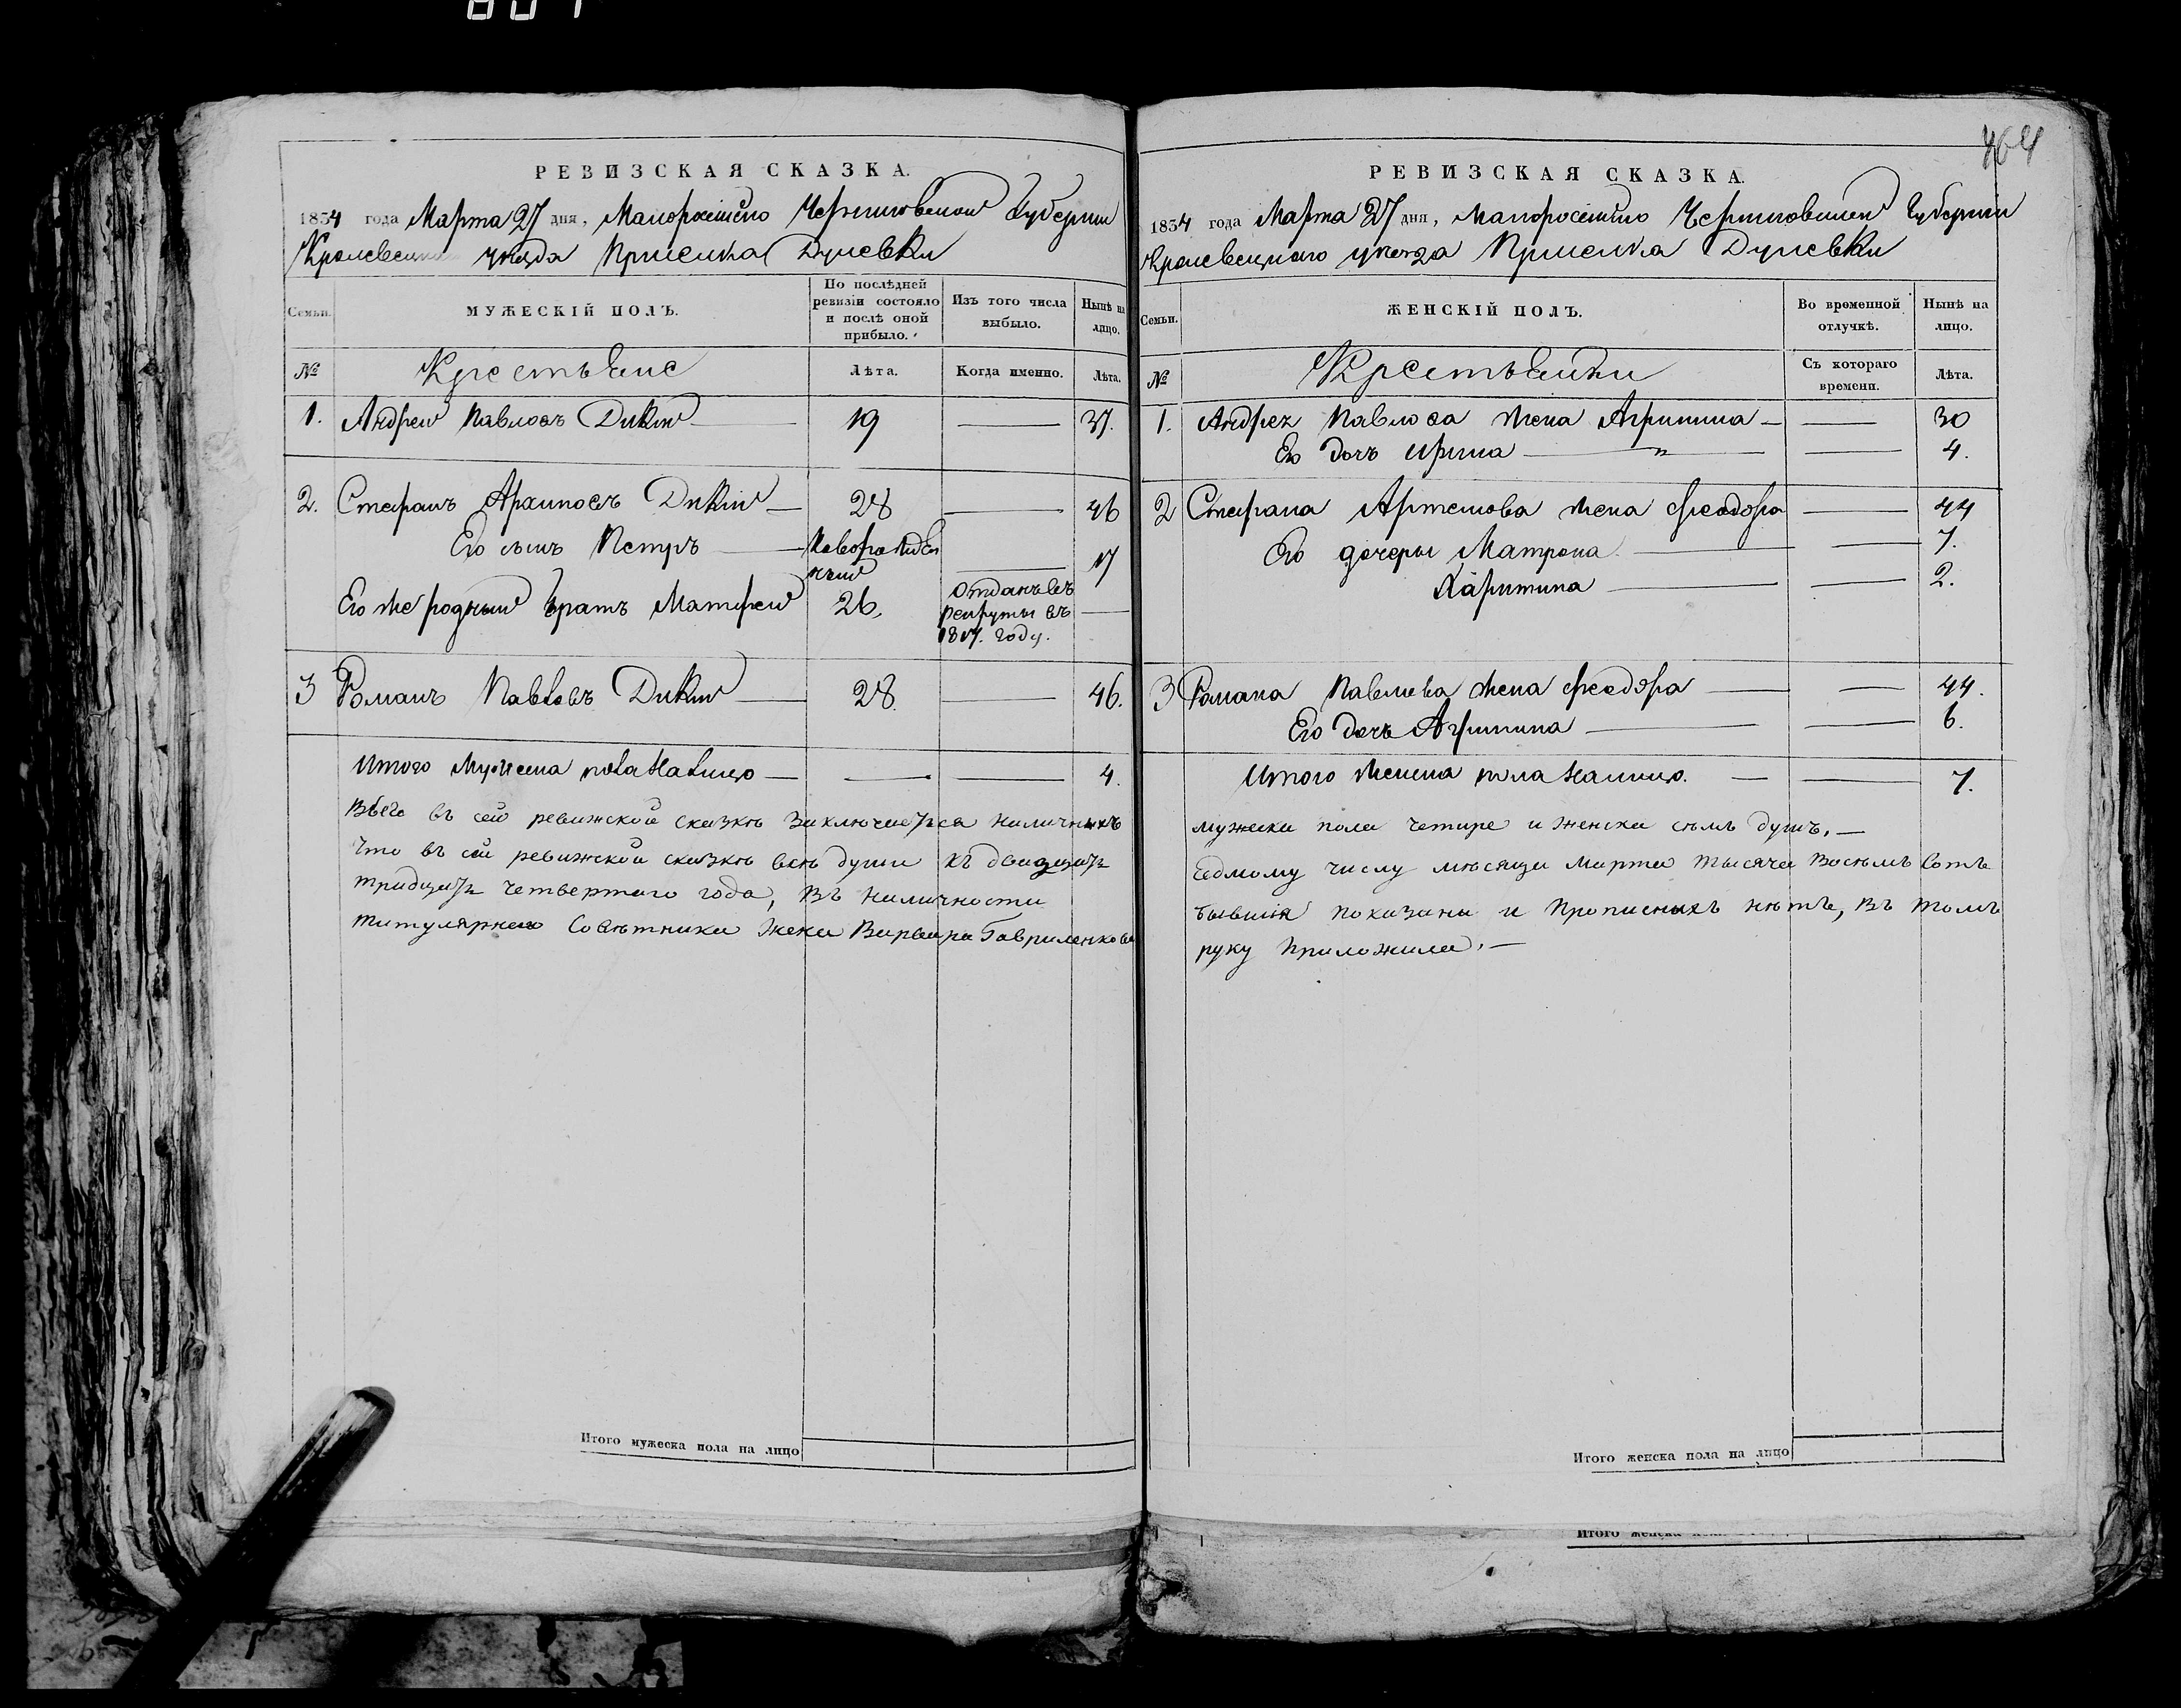 РЕВИЗСКАЯ СКАЗКА.
1834 года Марта 27 дня, Малороссійско Черниговской Губерніи
Кролевецкаго уезда Приселка Дулевки
Семьи.
МУЖЕСКІЙ ПОЛЪ.
По послѣдней ревизіи состояло и послѣ оной прибыло.
Изъ того числа выбыло.
Нынѣ на лицо.
№
Крестьяне
Лѣта.
Когда именно.
Лѣта.
1. Андрей Павловъ Дикий 19 37.
2. Стефанъ Архиповъ Дикий 28 46
Его сынъ Петръ Новорожден ный 17
Его же родный братъ Матфей 26, отданъ въ рекруты въ 1817. году.
3 Романъ Павловъ Дикий 28. 46.
Итого Мужеска пола на лицо 4.
Всего въ сей ревижской сказкѣ заключается наличныхъ
Что въ сей ревижской сказкѣ всѣ души къ двадцать
тридцать четвертого года, въ наличности
титулярнего Совѣтника жена Варвара Гавриленкова
Итого мужеска пола на лицо
464
РЕВИЗСКАЯ СКАЗКА.
1834 года Марта 27 дня, Малоросійско Черниговской Губерніи
Кролевецкаго уезда Приселка Дулевки
Семьи.
ЖЕНСКІЙ ПОЛЪ.
Во временной отлучкѣ.
Нынѣ на лицо.
№
Крестьянки
Съ котораго времени.
Лѣта.
1. Андрея Павлова жена Агрипина 30
Его дочъ Ирина 4.
2 Стефана Артемова жена Феодора 44
Его дочеры Матрона 7.
Харитина 2.
3 Романа Павлова жена Феодора 44.
Его дочь Агрипина 6.
Итого Женска пола на лицо. 7.
мужска пола четире и женска семъ душъ.
седмому числу мѣсяца марта тысяча восемъ сотъ
бывшія показани и прописныхъ нѣтъ, въ томъ
руку приложила.
Итого женска пола на лицо